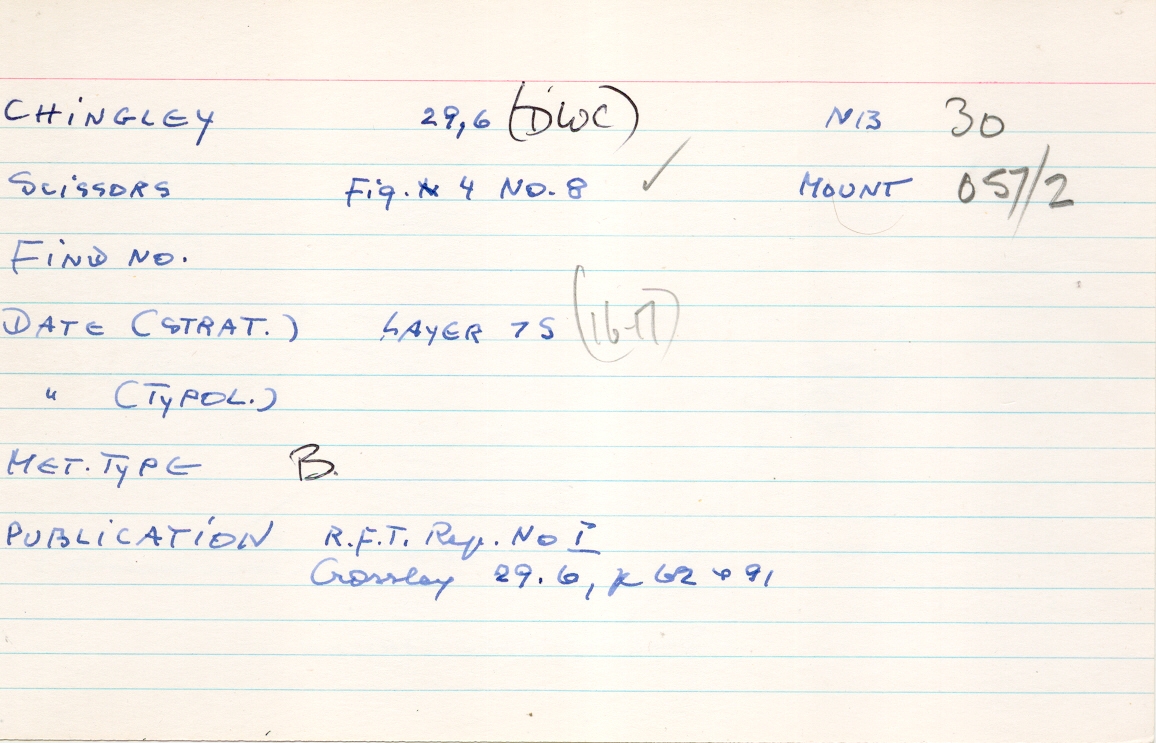 CHINGLEY 29,6 (DWC) N13 30
SCISSORS Fig. 4 NO. 8 ✓ MOUNT 057/2
FIND NO.
DATE (STRAT.) LAYER 75 (16-17)
" (TYPOL.)
MET. TYPE B.
PUBLICATION R.F.T. Rep. No I
Crossley 29.6, p 62 + 91